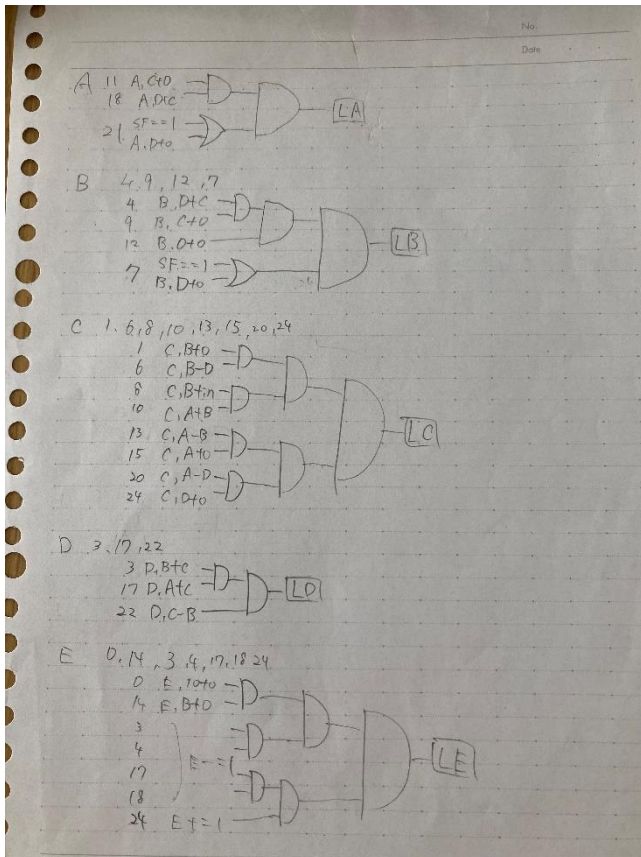 No.
Date
A 11 A, C+0
18 A, D+C
LA
21 SF==1
A, D+0
B 4, 9, 12, 7
4 B, D+C
9 B, C+0
12 B, 0+0
LB
7 SF==1
B, D+0
C 1, 6, 8, 10, 13, 15, 20, 24
1 C, B+0
6 C, B-D
8 C, B+in
10 C, A+B
LC
13 C, A-B
15 C, A+0
20 C, A-D
24 C, D+0
D 3, 17, 22
3 D, B+C
17 D, A+C
LD
22 D, C-B
E 0, 14, 3, 4, 17, 18 24
0 E, 10+0
14 E, B+0
3
4
E-=1
LE
17
18
24 E+=1